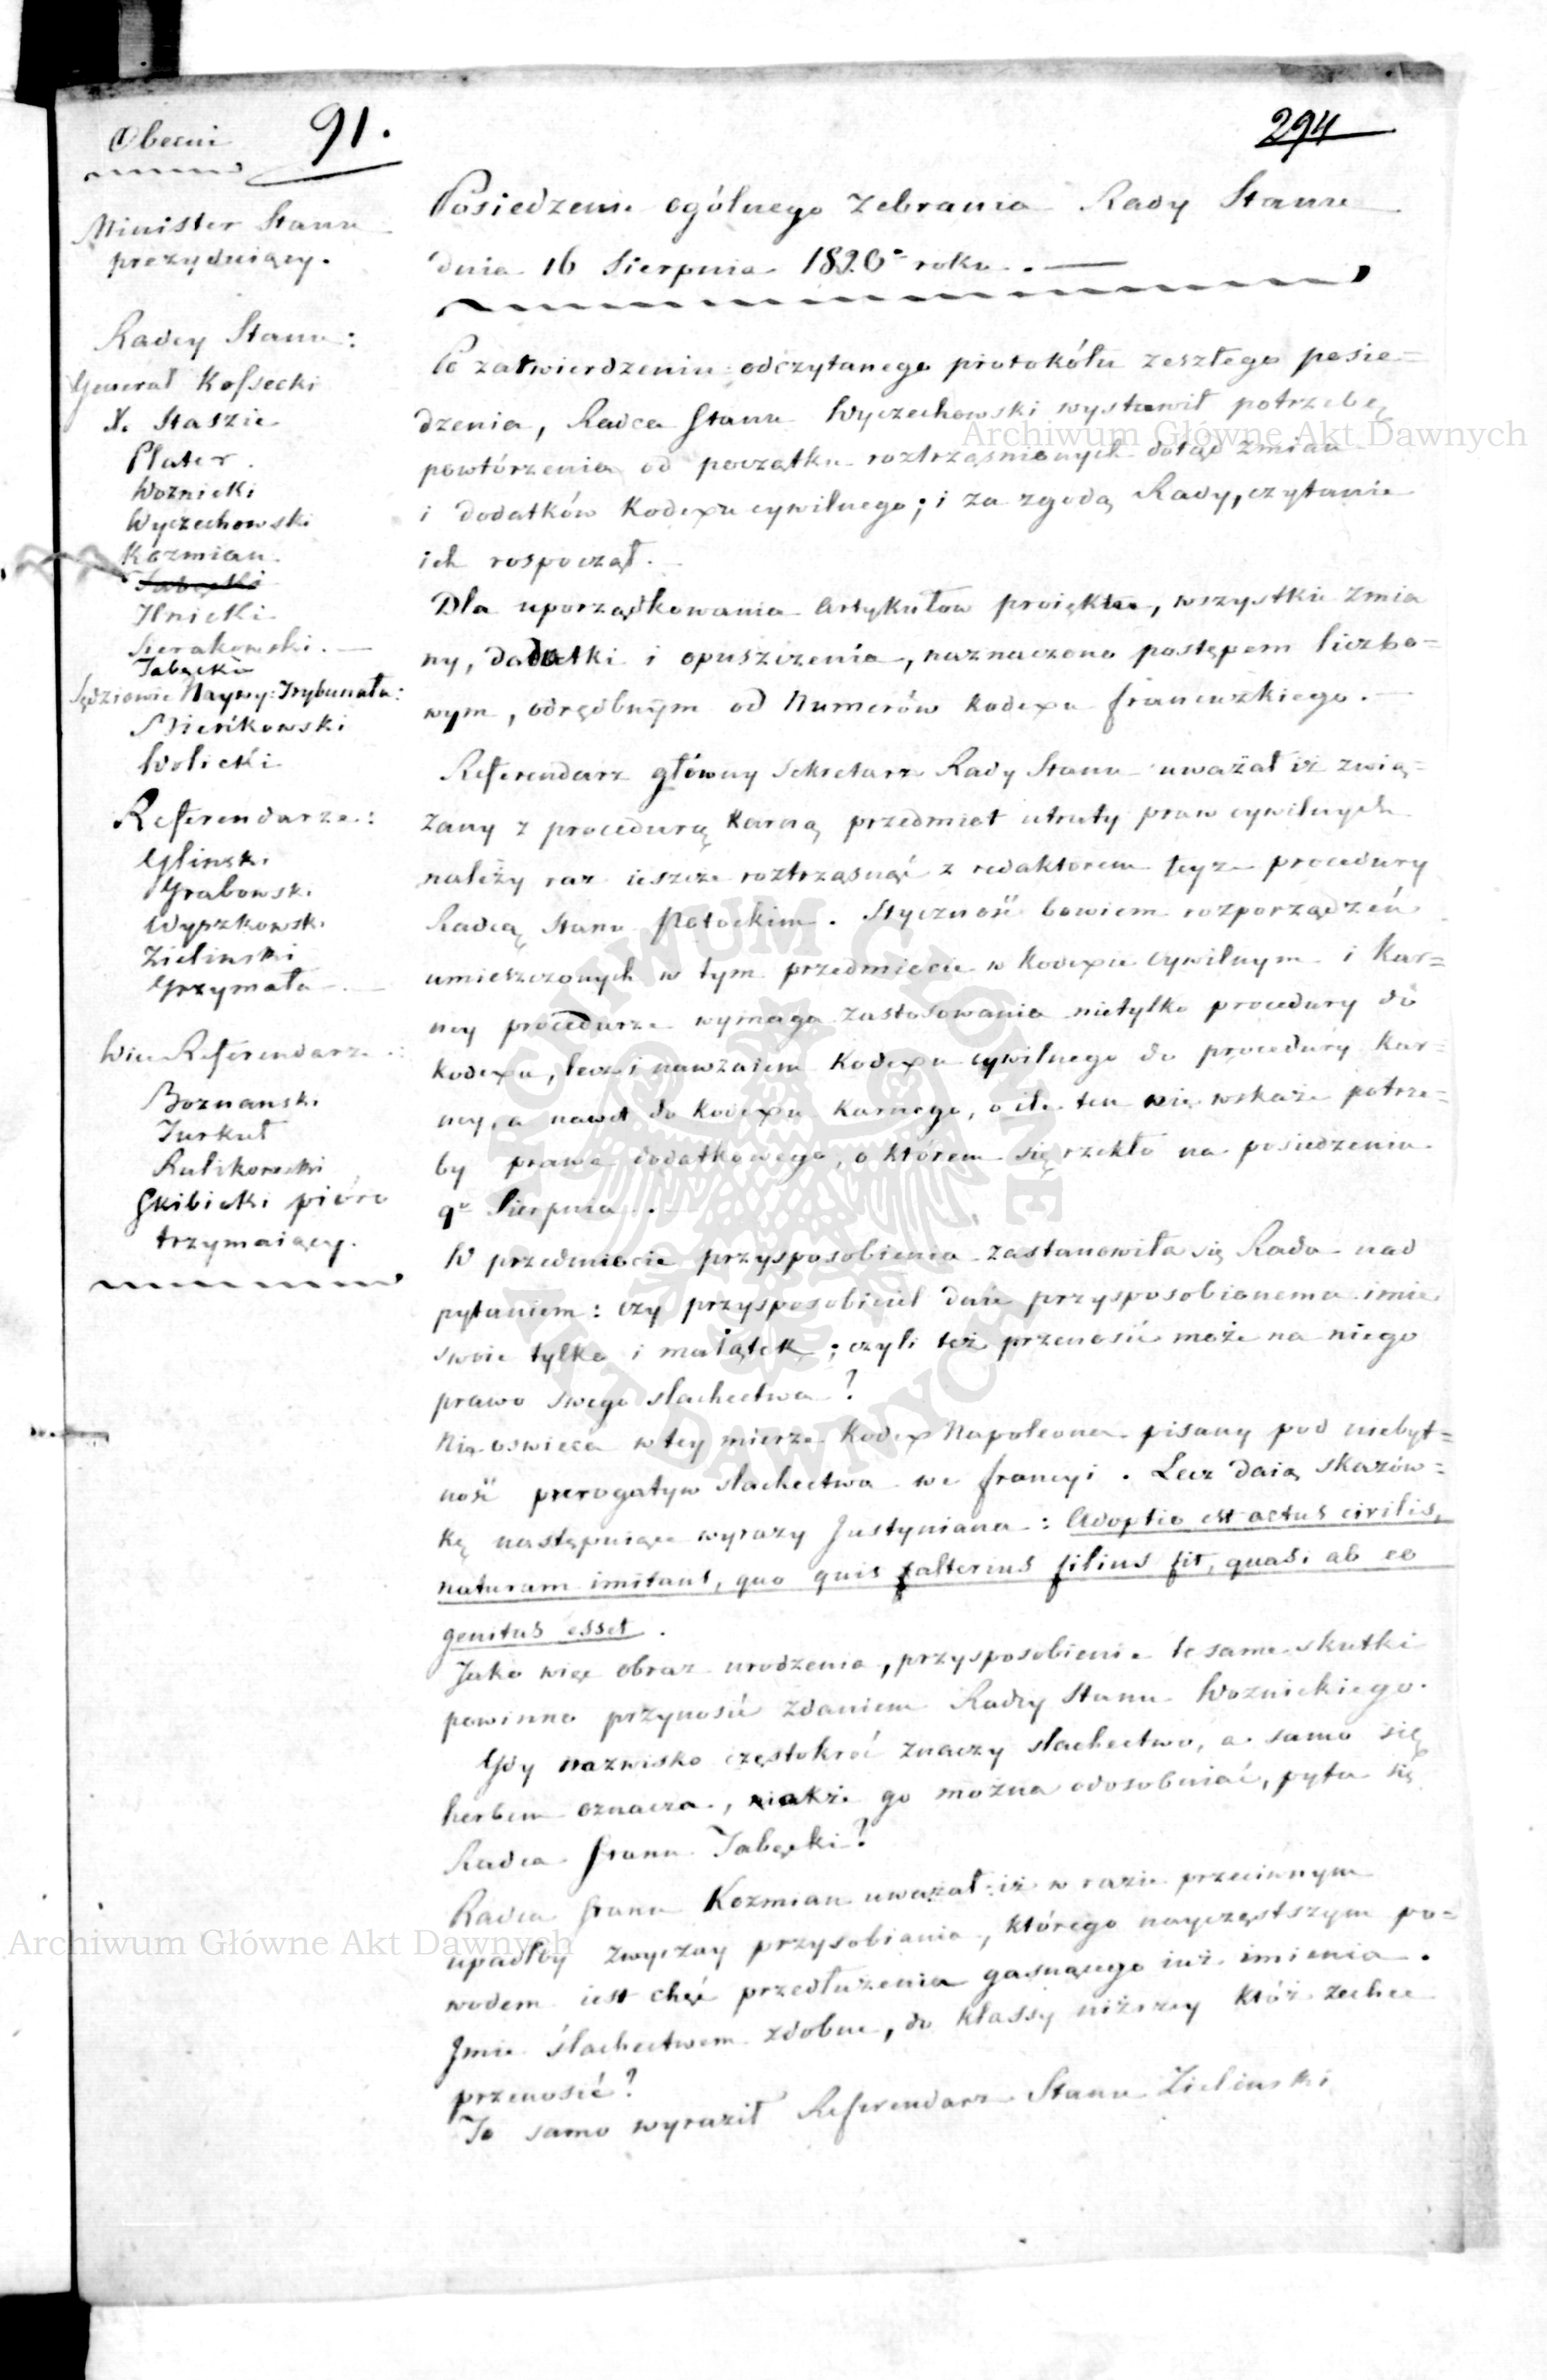 Obecni
91.
294
Minister Stanu
prezyduiący.
Radcy Stanu:
Generał Kossecki
X. Staszic
Plater.
Woznicki
Wyczechowski
Kozmian
Tabęcki
Ilnicki
Sierakowski.
Tabęcki
Sędziowie Naywy: Trybunału:
Mieńkowski
Wolicki
Referendarze:
Glinski
Grabowski
Wyszkowski
Zielinski
Grzymała
Wice Referendarze:
Boznanski
Turkuł
Kalikowski
Skibicki pióro
trzymaiący.
Posiedzenie ogólnego zebrania Rady Stanu
dnia 16 Sierpnia 1820. roku.
Po zatwierdzeniu odczytanego protokółu zeszłego posie=
dzenia, Radca Stanu Wyczechowski wystawił potrzebę
powtórzenia od początku roztrząsnionych dotąd zmian
i dodatków Kodexu cywilnego; i za zgodą Rady, czytanie
ich rospoczął.
Dla uporządkowania Artykułow proiektu, wszystkie zmia
ny, dodatki i opuszczenia, naznaczono postępem liczbo=
wym, odrębnym od Numerów Kodexu francuzkiego.
Referendarz główny Sekretarz Rady Stanu uważał iż zwią=
zany z procedurą Karną przedmiot utraty praw cywilnych
należy raz ieszcze roztrząsnąć z redaktorem teyze procedury
Radcą Stanu Potockim. Styczność bowiem rozporządzeń
umieszczonych w tym przedmiocie w Kodexie cywilnym i Kar=
ney procedurze wymaga zastosowania nietylko procedury do
Kodexu, lecz i nawzaiem Kodexu cywilnego do procedury Kar=
ney, a nawet do Kodexu Karnego, o ile ten nie wskaże potrze=
by prawa dodatkowego, o którem się rzekło na posiedzeniu
9º Sierpnia.
W przedmiocie przysposobienia zastanowiła się Rada nad
pytaniem: czy przysposobiciel daie przysposobionemu imie
swoie tylko i maiątek; czyli też przenosić może na niego
prawo swego slachectwa?
Nie oswieca w tey mierze Kodex Napoleona pisany pod niebyt=
ność prerogatyw slachectwa we francyi. Lecz daią skazów=
kę następuiące wyrazy Justyniana: Adoptio est actus civilis,
naturam imitans, quo quis alterius filius fit, quasi ab eo
genitus esset.
Jako więc obraz urodzenia, przysposobienie te same skutki
powinno przynosić zdaniem Radcy Stanu Woznickiego.
Gdy nazwisko częstokroć znaczy slachectwo, a samo się
herbem oznacza, iakże go można odosobniać, pyta się
Radca Stanu Tabęcki?
Radca Stanu Kozmian uważał iż w razie przeciwnym
upadłby zwyczay przysobiania, którego nayczęstszym po=
wodem iest chęć przedłużenia gasnącego iuż imienia.
Imie ślachectwem zdobne, do klassy niższey któż zechce
przenosić?
To samo wyraził Referendarz Stanu Zielinski
Archiwum Główne Akt Dawnych
ARCHIWUM GŁÓWNE AKT DAWNYCH
Archiwum Główne Akt Dawnych